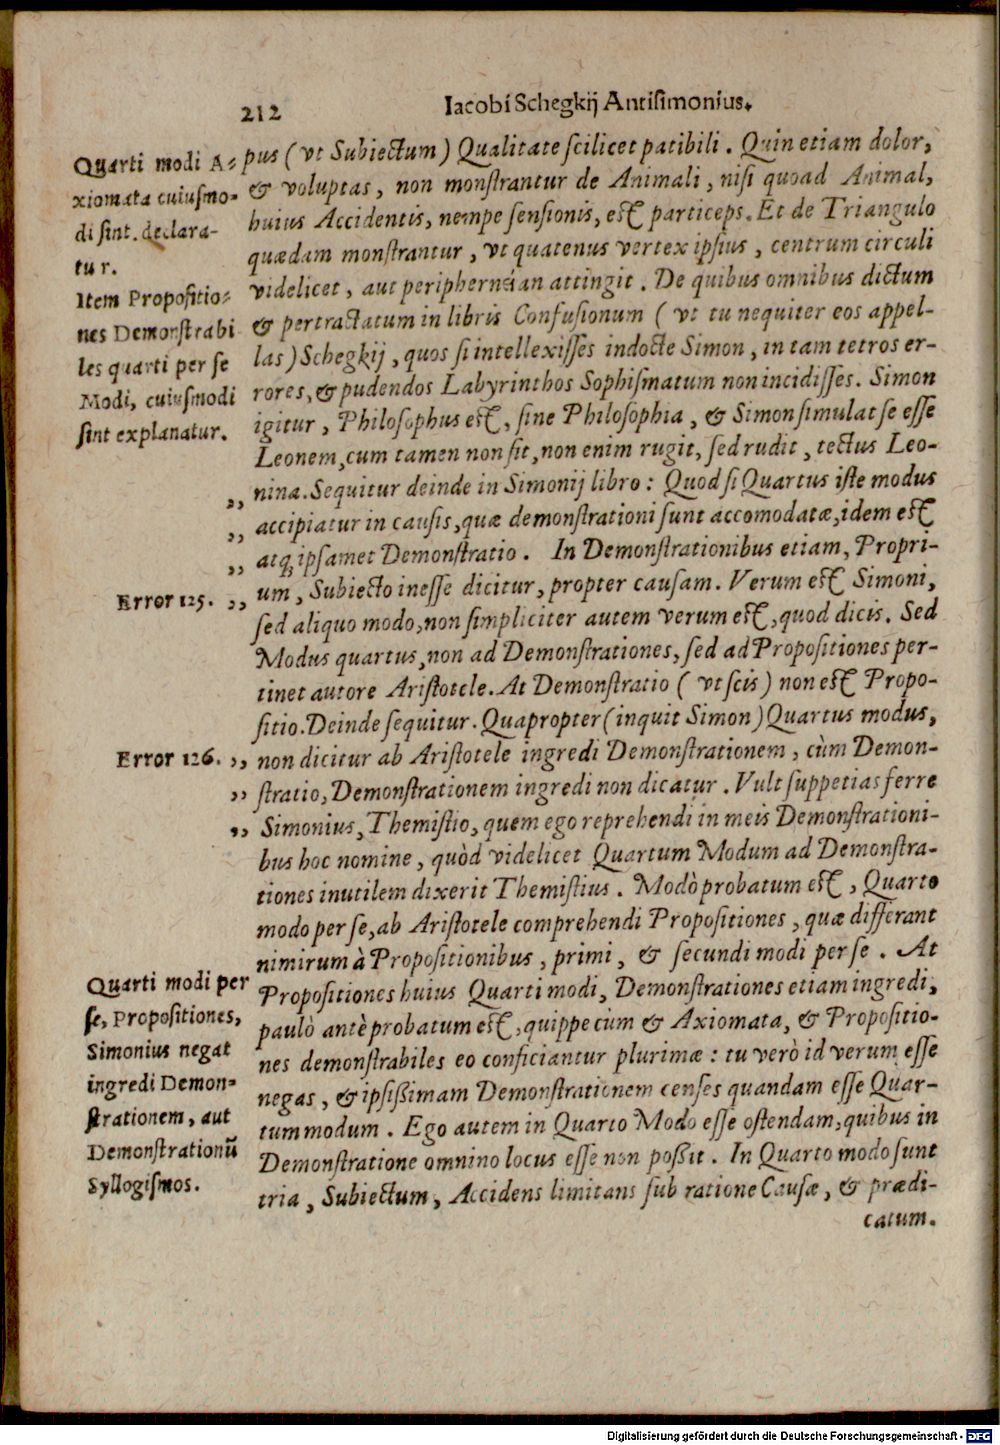 212
Iacobi Schegkij Antisimonius.
Quarti modi A-
xiomata cuiusmo-
di sint. declara-
tur.
Item Propositio-
nes Demonstrabi
les quarti per se
Modi, cuiusmodi
sint explanatur.
pus (vt Subiectum) Qualitate scilicet patibili. Quin etiam dolor,
& voluptas, non monstrantur de Animali, nisi quoad Animal,
huius Accidentis, nempe sensionis, est particeps. Et de Triangulo
quædam monstrantur, vt quatenus vertex ipsius, centrum circuli
videlicet, aut an attingit. De quibus omnibus dictum
& pertractatum in libris Confusionum (vt tu nequiter eos appel-
las) Schegkij, quos si intellexisses indocte Simon, in tam tetros er-
rores, & pudendos Labyrinthos Sophismatum non incidisses. Simon
igitur, Philosophus est, sine Philosophia, & Simon simulat se esse
Leonem, cum tamen non sit, non enim rugit, sed rudit, tectus Leo-
,, nina. Sequitur deinde in Simonij libro: Quod si Quartus iste modus
,, accipiatur in causis, quæ demonstrationi sunt accomodatæ, idem est
,, atq; ipsamet Demonstratio. In Demonstrationibus etiam, Propri-
Error 125. ,, um, Subiecto inesse dicitur, propter causam. Verum est Simoni,
sed aliquo modo, non simpliciter autem verum est, quod dicis. Sed
Modus quartus, non ad Demonstrationes, sed ad Propositiones per-
tinet autore Aristotele. At Demonstratio (vt scis) non est Propo-
sitio. Deinde sequitur. Quapropter (inquit Simon) Quartus modus,
Error 126. ,, non dicitur ab Aristotele ingredi Demonstrationem, cùm Demon-
,, stratio, Demonstrationem ingredi non dicatur. Vult suppetias ferre
,, Simonius, Themistio, quem ego reprehendi in meis Demonstrationi-
bus hoc nomine, quòd videlicet Quartum Modum ad Demonstra-
tiones inutilem dixerit Themistius. Modò probatum est, Quarto
modo per se, ab Aristotele comprehendi Propositiones, quæ differant
nimirum à Propositionibus, primi, & secundi modi per se. At
Propositiones huius Quarti modi, Demonstrationes etiam ingredi,
paulò antè probatum est, quippe cùm & Axiomata, & Propositio-
nes demonstrabiles eo conficiantur plurimæ: tu verò id verum esse
negas, & ipsißimam Demonstrationem censes quandam esse Quar-
tum modum. Ego autem in Quarto Modo esse ostendam, quibus in
Demonstratione omnino locus esse non poßit. In Quarto modo sunt
tria, Subiectum, Accidens limitans sub ratione Causæ, & prædi-
catum.
Quarti modi per
se, Propositiones,
Simonius negat
ingredi Demon-
strationem, aut
Demonstrationū
Syllogismos.
Digitalisierung gefördert durch die Deutsche Forschungsgemeinschaft - DFG